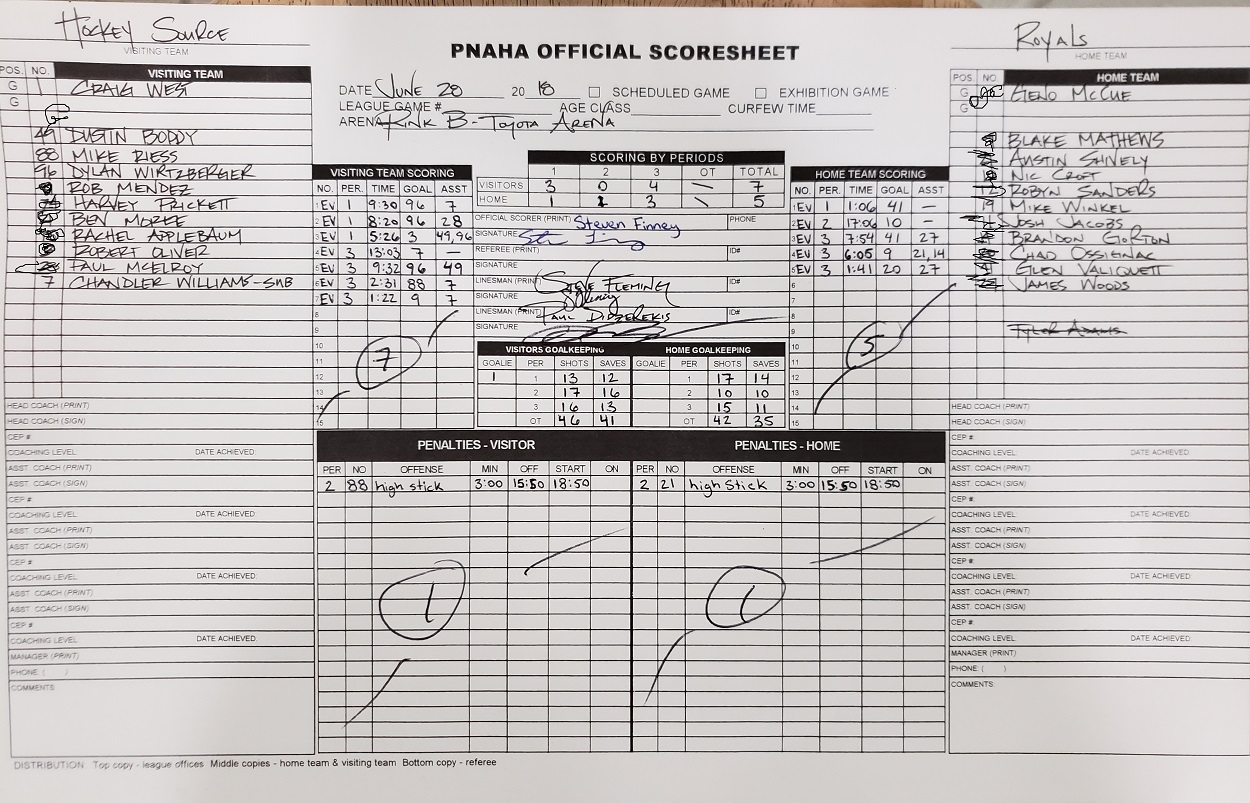 Hockey Source
VISITING TEAM
Royals
HOME TEAM
PNAHA OFFICIAL SCORESHEET
DATE June 28 2018 SCHEDULED GAME EXHIBITION GAME
LEAGUE GAME # AGE CLASS CURFEW TIME
ARENA Rink B - Toyota Arena
POS. NO. VISITING TEAM
G 1 CRAIG WEST
G
49 DUSTIN BODDY
88 MIKE RIESS
96 DYLAN WIRTZBERGER
ROB MENDEZ
HARVEY PRICKETT
BEN MOREE
RACHEL APPLEBAUM
ROBERT OLIVER
PAUL MCELROY
7 CHANDLER WILLIAMS-SUB
VISITING TEAM SCORING
NO. PER. TIME GOAL ASST
1 EV 1 9:30 96 7
2 EV 1 8:20 96 28
3 EV 1 5:26 3 49,96
4 EV 3 13:03 7 —
5 EV 3 9:32 96 49
6 EV 3 2:31 88 7
7 EV 3 1:22 9 7
8
9
10
11
12
13
14
15
7
SCORING BY PERIODS
1 2 3 OT TOTAL
VISITORS 3 0 4 \ 7
HOME 1 1 3 \ 5
OFFICIAL SCORER (PRINT) Steven Finney PHONE
SIGNATURE
REFEREE (PRINT) ID#
SIGNATURE
LINESMAN (PRINT) Steve Fleming ID#
SIGNATURE
LINESMAN (PRINT) Paul Didzerekis ID#
SIGNATURE
VISITORS GOALKEEPING HOME GOALKEEPING
GOALIE PER SHOTS SAVES GOALIE PER SHOTS SAVES
1 1 13 12 1 17 14
2 17 16 2 10 10
3 16 13 3 15 11
OT 46 41 OT 42 35
HOME TEAM SCORING
NO. PER. TIME GOAL ASST
1 EV 1 1:06 41 —
2 EV 2 17:06 10 —
3 EV 3 7:54 41 27
4 EV 3 6:05 9 21,14
5 EV 3 1:41 20 27
6
7
8
9
10
11
12
13
14
15
5
POS. NO. HOME TEAM
G GENO McCUE
G
BLAKE MATHEWS
AUSTIN SHIVELY
NIC CROFT
12 ROBYN SANDERS
19 MIKE WINKEL
JOSH JACOBS
BRANDON GORTON
CHAD OSSIEINAC
GLEN VALIQUETT
JAMES WOODS
TYLER ADAMS
HEAD COACH (PRINT)
HEAD COACH (SIGN)
CEP #
COACHING LEVEL: DATE ACHIEVED:
ASST. COACH (PRINT)
ASST. COACH (SIGN)
CEP #
COACHING LEVEL: DATE ACHIEVED:
ASST. COACH (PRINT)
ASST. COACH (SIGN)
CEP #
COACHING LEVEL: DATE ACHIEVED:
ASST. COACH (PRINT)
ASST. COACH (SIGN)
CEP #
COACHING LEVEL: DATE ACHIEVED:
MANAGER (PRINT)
PHONE: ( )
COMMENTS:
PENALTIES - VISITOR PENALTIES - HOME
PER NO OFFENSE MIN OFF START ON PER NO OFFENSE MIN OFF START ON
2 88 high stick 3:00 15:50 18:50 2 21 high stick 3:00 15:50 18:50
1 1
HEAD COACH (PRINT)
HEAD COACH (SIGN)
CEP #
COACHING LEVEL: DATE ACHIEVED:
ASST. COACH (PRINT)
ASST. COACH (SIGN)
CEP #
COACHING LEVEL: DATE ACHIEVED:
ASST. COACH (PRINT)
ASST. COACH (SIGN)
CEP #
COACHING LEVEL: DATE ACHIEVED:
ASST. COACH (PRINT)
ASST. COACH (SIGN)
CEP #
COACHING LEVEL: DATE ACHIEVED:
MANAGER (PRINT)
PHONE: ( )
COMMENTS:
DISTRIBUTION Top copy - league offices Middle copies - home team & visiting team Bottom copy - referee